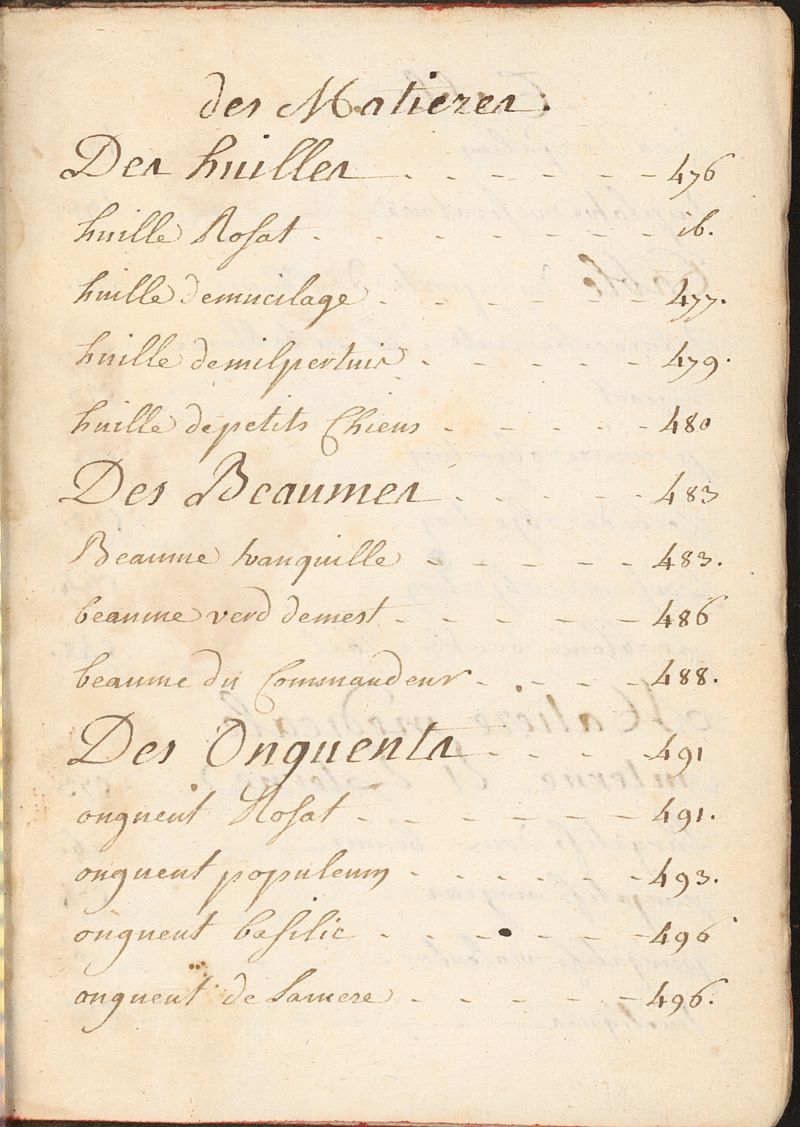 des Matieres.
Des huilles - - - - - - 476
huille Rosat - - - - - - ib.
huille demucilage - - - - - 477.
huille demilpertuis - - - - - 479.
huille depetits Chiens - - - - 480
Des Beaumes - - - - 483
Beaume tranquille - - - - - 483.
beaume verd demest - - - - - 486
beaume du Commandeur - - - - 488.
Des Onguents - - - - 491
onguent Rosat - - - - - - 491.
onguent populeum - - - - - 493.
onguent basilic - - - - - - 496
onguent de Lamere - - - - - 496.